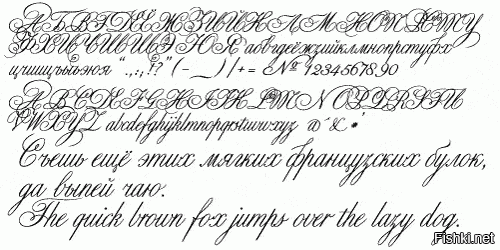 АБВГДЕЁЖЗИЙКЛМНОПРСТУ
ФХЦЧШЩЪЫЬЭЮЯ абвгдеёжзийклмнопрстуфх
цчшщъыьэюя " . , : ; !? " ( - _ ) | + = № 1234567890
ABCDEFGHIJKLMNOPQRSTU
VWXYZ abcdefghijklmnopqrstuvwxyz
Съешь ещё этих мягких французских булок,
да выпей чаю.
The quick brown fox jumps over the lazy dog.
Fishki.net